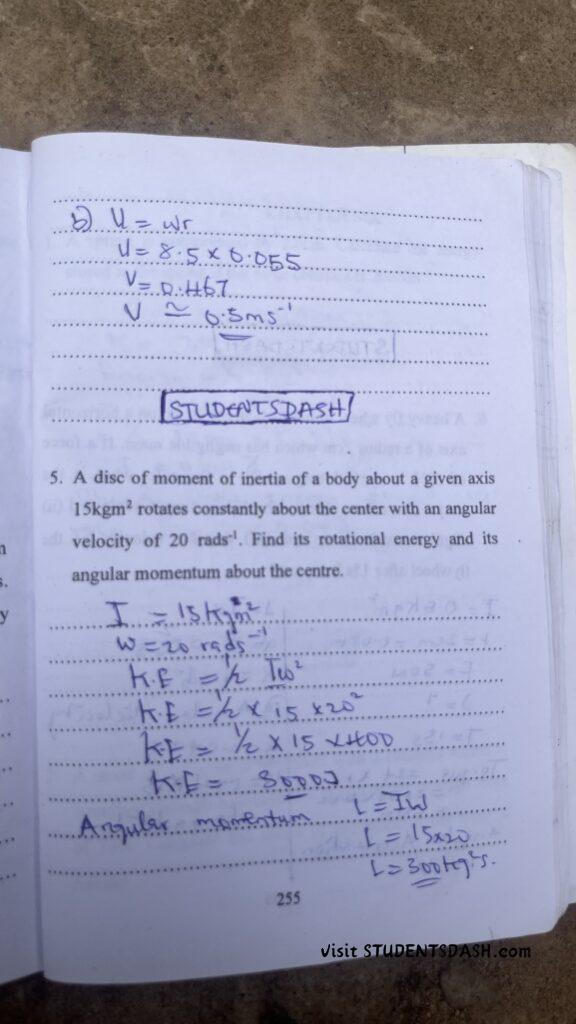 b) U = wr
U = 8.5 x 0.055
V = 0.467
V ≃ 0.5ms⁻¹
STUDENTSDASH
5. A disc of moment of inertia of a body about a given axis
15kgm² rotates constantly about the center with an angular
velocity of 20 rads⁻¹. Find its rotational energy and its
angular momentum about the centre.
I = 15kgm²
W = 20 rads⁻¹
K.E = ½ Iw²
K.E = ½ x 15 x 20²
K.E = ½ x 15 x 400
K.E = 3000J
Angular momentum L = IW
L = 15x20
L = 300kg²s.
255
Visit STUDENTSDASH.com